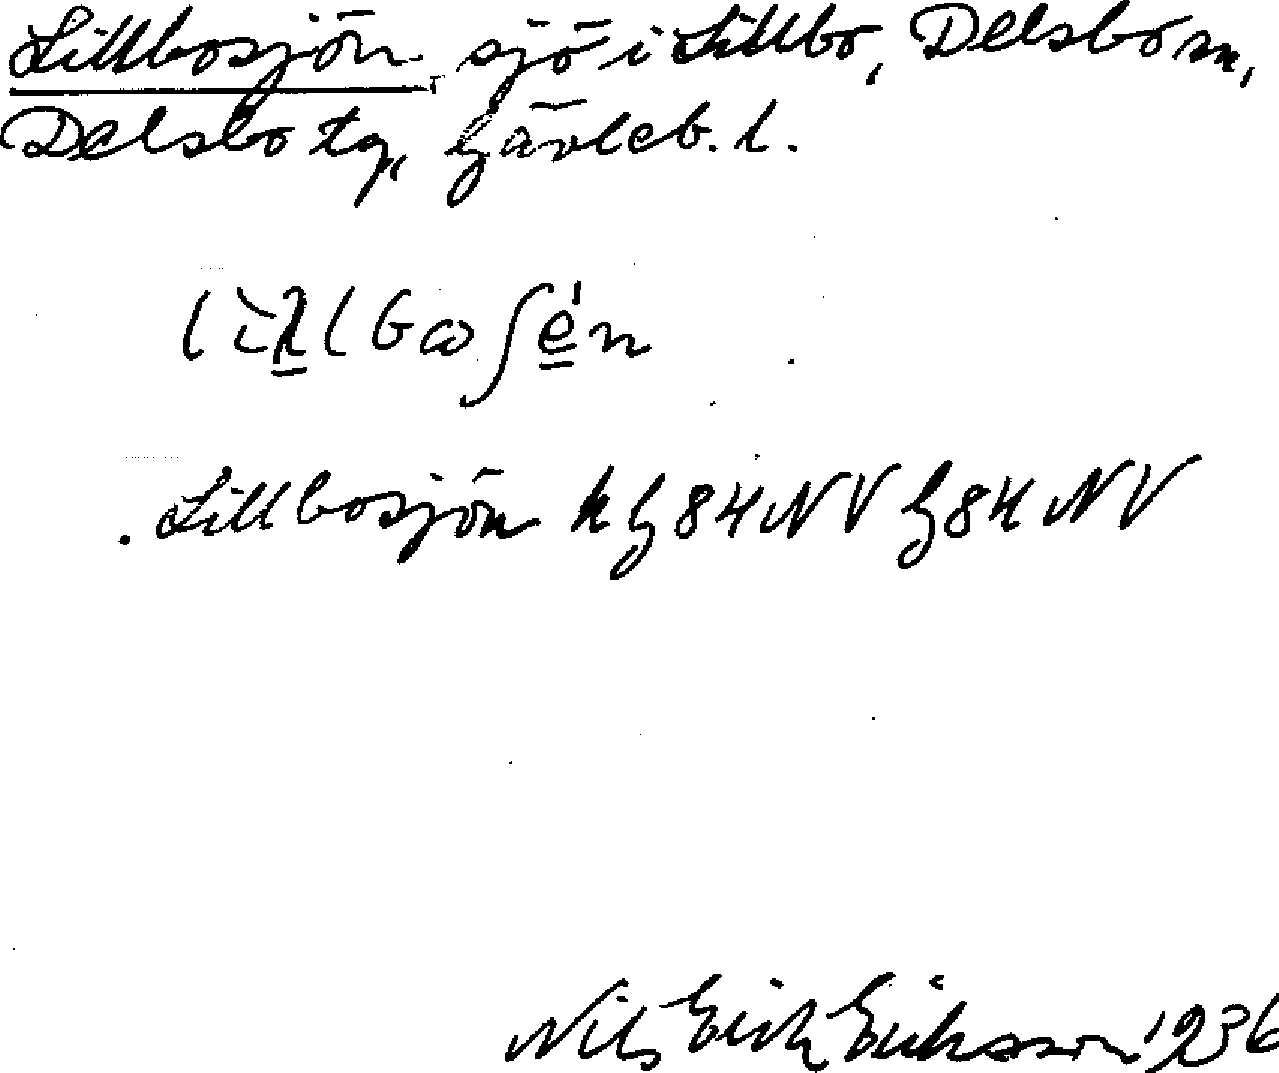 Lillbosjön, sjö i Lillbo, Delsbo sn,
Delsbo tg, Gävleb. l.
Lillbosjön hg 84 NV G 84 NV
Nils Erik Eriksson 1936